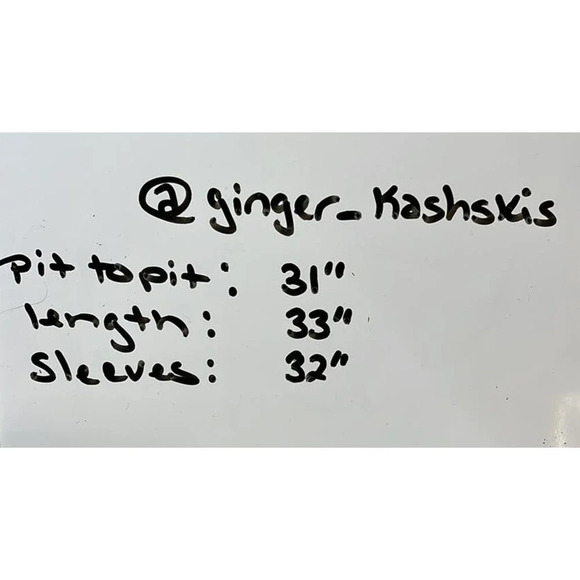 @ginger_Kashskis
pit to pit: 31"
length: 33"
Sleeves: 32"